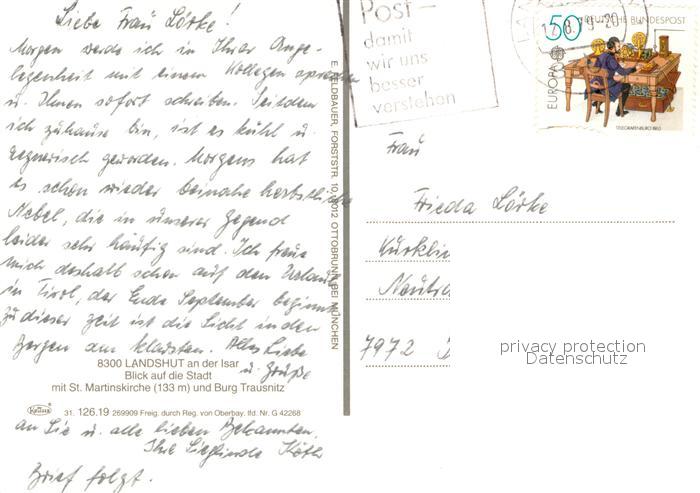 Liebe Frau Lörke!
Morgen werde ich in Ihrer Ange-
legenheit mit einem Kollegen sprechen
u. Ihnen sofort schreiben. Seitdem
ich zuhause bin, ist es kühl u.
regnerisch geworden. Morgens hat
es schon wieder beinahe herbstliche
Nebel, die in unserer Gegend
leider sehr häufig sind. Ich freue
mich deshalb schon auf den Urlaub
in Tirol, der Ende September beginnt
zu dieser Zeit ist die Sicht in den
Bergen am klarsten. Alles Liebe
u. Grüße
8300 LANDSHUT an der Isar
Blick auf die Stadt
mit St. Martinskirche (133 m) und Burg Trausnitz
31. 126.19 269909 Freig. durch Reg. von Oberbay. lfd. Nr. G 42268
an Sie u. alle lieben Bekannten,
Ihre Sieglinde
Brief folgt.
E. FELDBAUER, FORSTSTR. 10, 8012 OTTOBRUNN BEI MÜNCHEN
Post-
damit
wir uns
besser
verstehen
50 DEUTSCHE BUNDESPOST
EUROPA
TELEGRAFENBÜRO 1863
Frau
Frieda Lörke
Kurklin
7972
privacy protection
Datenschutz